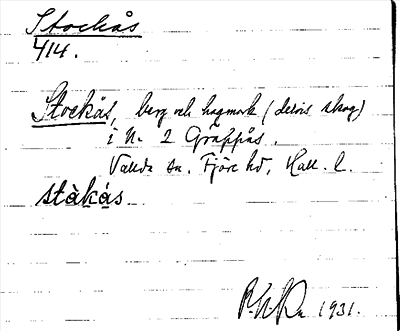 Stockås
414.
Stockås, berg och hagmark (delvis skog)
i N. 2 Gräppås.
Vallda sn. Fjäre hd, Hall. l.
stàkás
1931.